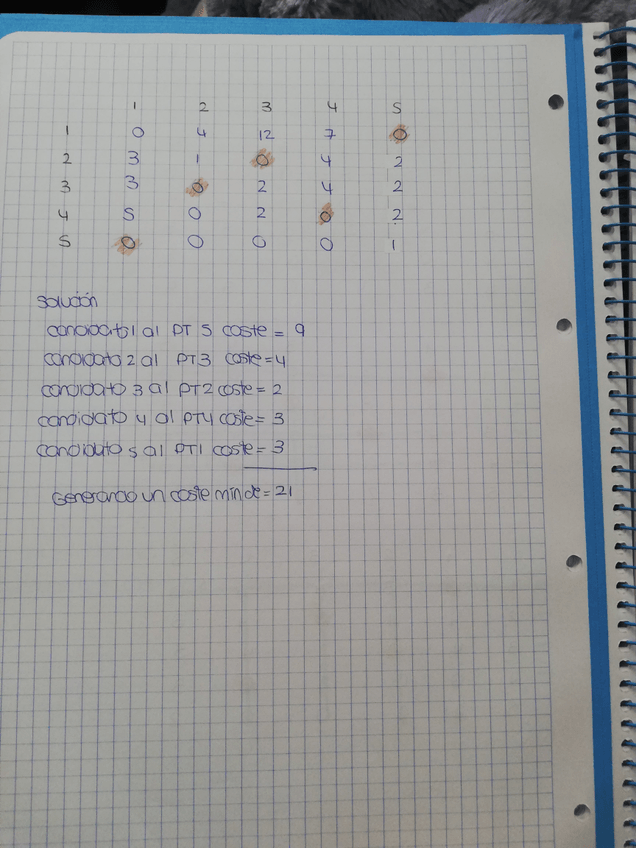 1 2 3 4 5
1 0 4 12 7 0
2 3 1 0 4 2
3 3 0 2 4 2
4 5 0 2 0 2
5 0 0 0 0 1
solución
candidato 1 al PT 5 coste = 9
candidato 2 al PT3 coste = 4
candidato 3 al PT2 coste = 2
candidato 4 al PT4 coste = 3
candidato 5 al PT1 coste = 3
Generando un coste min de = 21